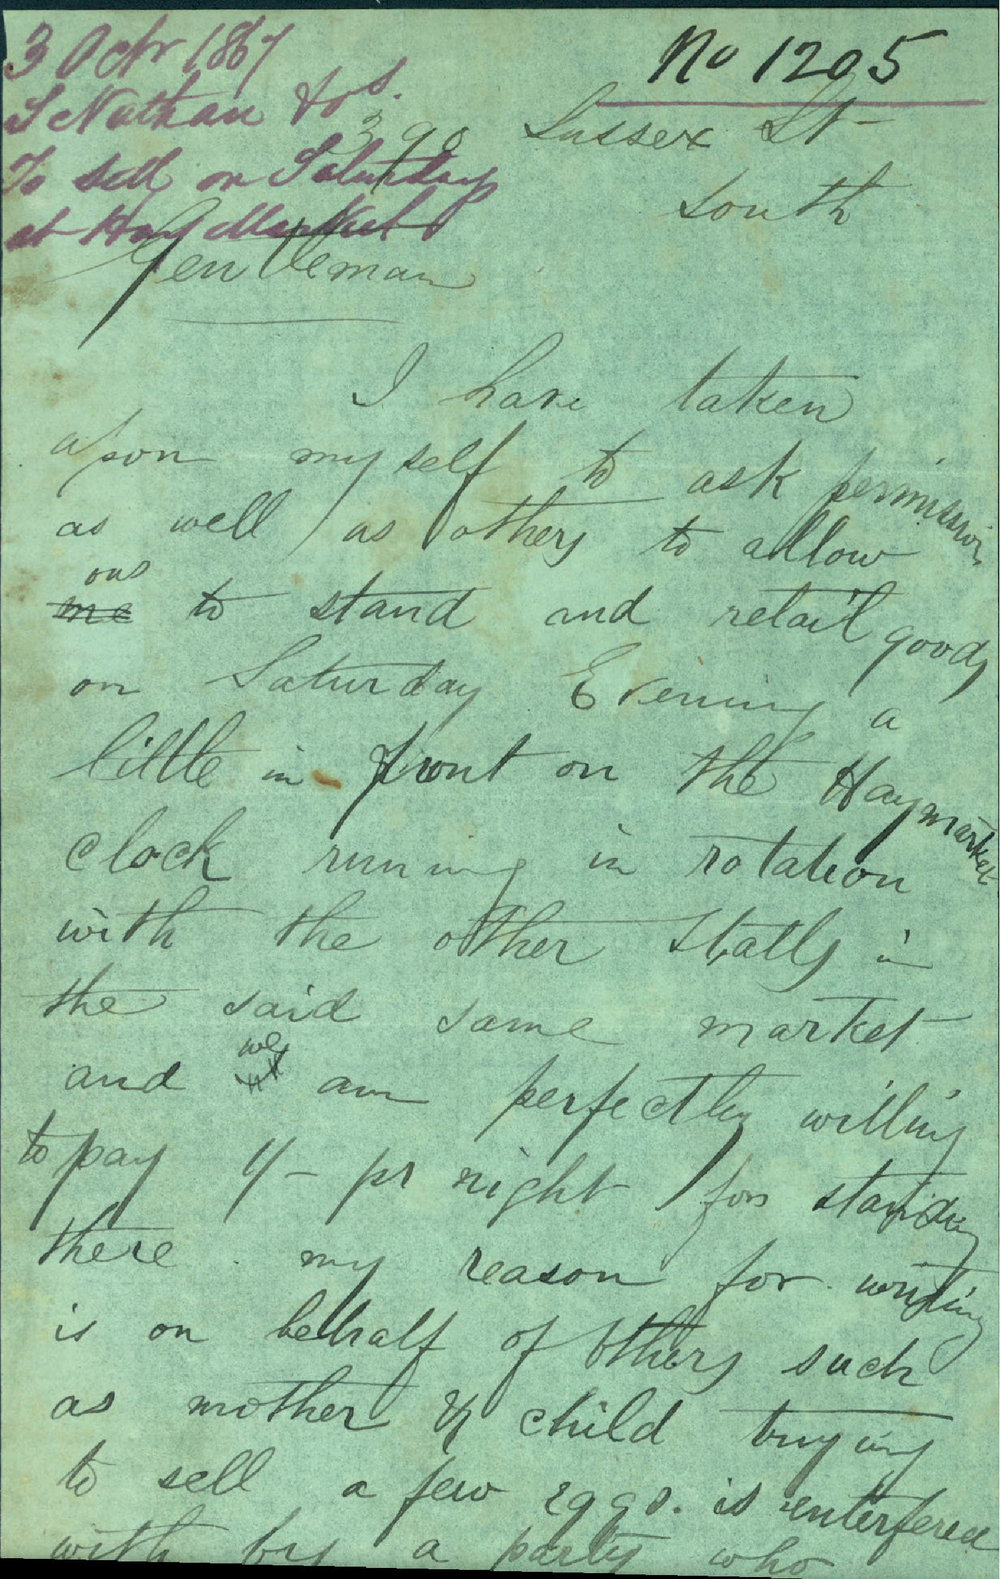 3 Octr 1867
S Nathan & ors.
To sell on Saturday
at Hay Market
No 1205
390 Sussex St
South
Gentleman
I have taken
upon myself to ask permission
as well as others to allow
ous
me to stand and retail goods
on Saturday Evening a
little in front on the Haymarket
clock running in rotation
with the other Stalls in
the said same market
and we am perfectly willing
to pay 1/- pr night for standing
there. my reason for writing
is on behalf of others such
as mother & child trying
to sell a few eggs. is enterfered
with by a party who